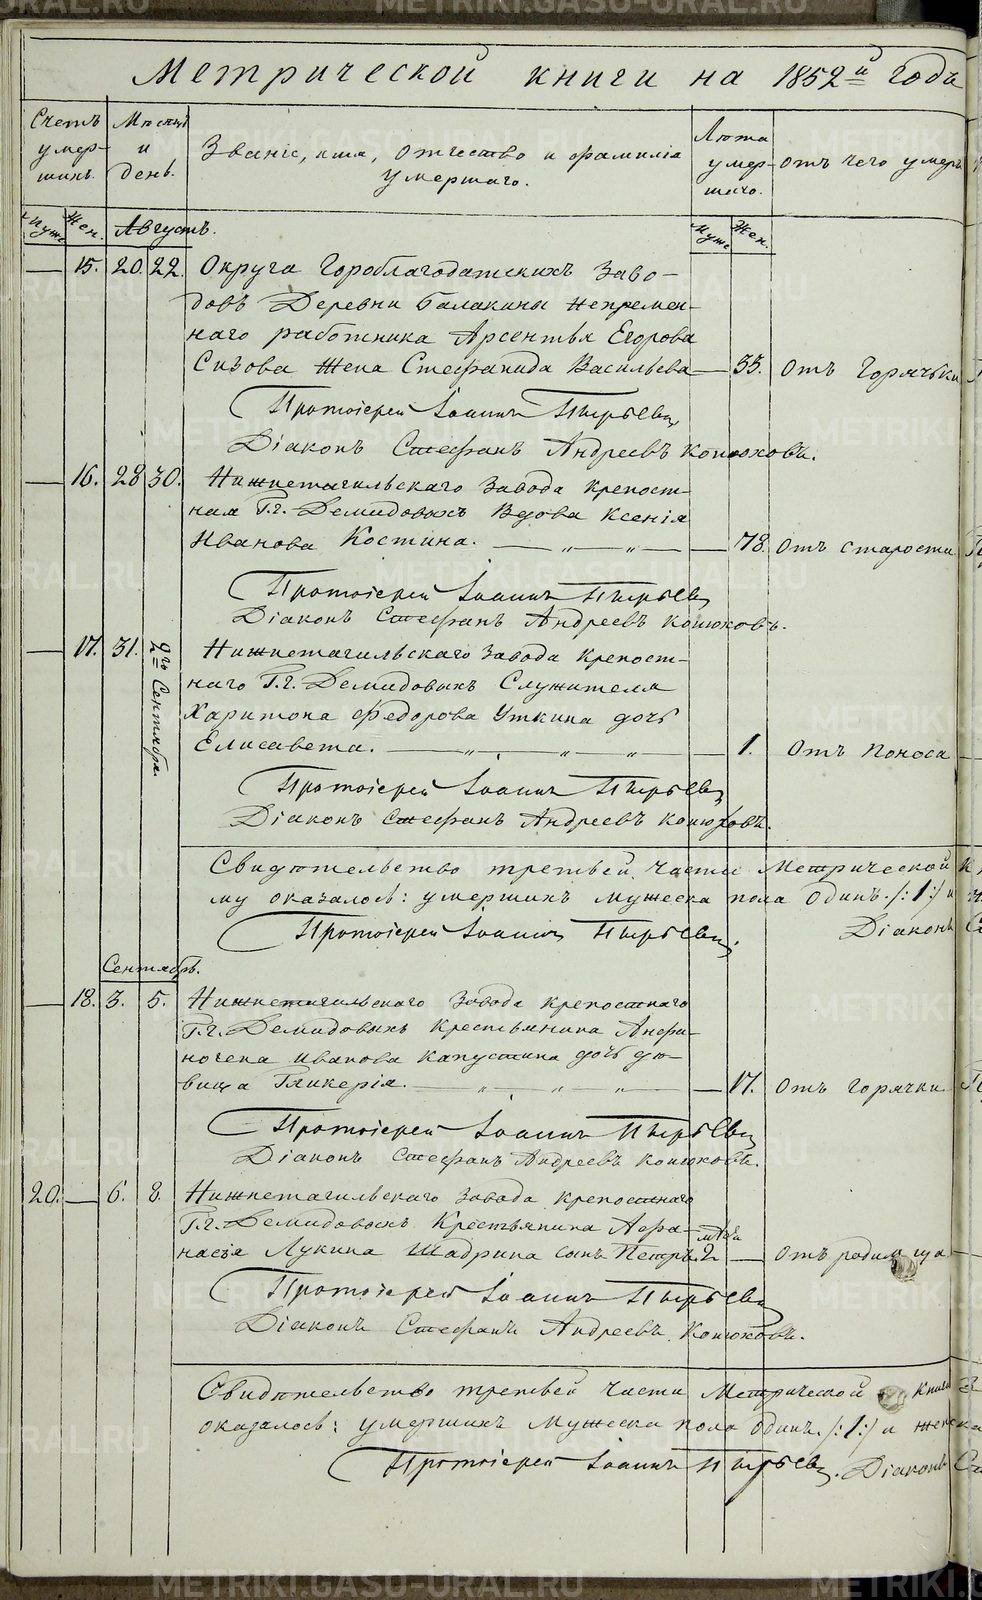 Метрической книги на 1852й годъ
Счетъ умер- шихъ.
Мѣсяцъ и день.
Званіе, имя, отчество и фамилія умершаго.
Лѣта умер- шаго.
отъ чего умеръ
Муже Жен. Августъ. Муже Жен.
— 15. 20. 22. Округа Гороблагодатскихъ Заво-
довъ Деревни Балакины непремен-
наго работника Арсентья Егорова
Сизова жена Стефанида Васильева — 55. отъ Горячьки
Протоіерей Іоаннъ Пырьевъ
Діаконъ Стефанъ Андреевъ Конюховъ.
— 16. 28 30. Нижнетагильскаго Завода крепост-
ная Г.г. Демидовыхъ Вдова Ксенія
Иванова Костина. — „ — „ — — 78. отъ старости
Протоіерей Іоаннъ Пырьевъ
Діаконъ Стефанъ Андреевъ Конюховъ.
— 17. 31. 2го Сентября. Нижнетагильскаго Завода Крепост-
наго Г.г. Демидовыхъ Служителя
Харитона Федорова Уткина дочь
Елисавета. — „ — „ — „ — — 1. Отъ поноса
Протоіерей Іоаннъ Пырьевъ
Діаконъ Стефанъ Андреевъ Конюховъ.
Свидѣтельство третьей части Метрической
му оказалось: умершихъ мужеска пола одинъ. /:1:/ и
Протоіерей Іоаннъ Пырьевъ. Діаконъ
Сентябрь.
— 18. 3. 5. Нижнетагильскаго Завода крепостнаго
Г.г. Демидовыхъ Крестьянина Анфи-
ногена Иванова Капустина дочь дѣ-
вица Гликерія. — „ — „ — „ — — 17. отъ горячки
Протоіерей Іоаннъ Пырьевъ
Діаконъ Стефанъ Андреевъ Конюховъ.
20. — 6. 8. Нижнетагильскаго Завода крепостнаго
Г.г. Демидовыхъ Крестьянина Афа-
насья Лукина Шадрина сынъ Петръ. 2 — отъ родимца
Протоіерей Іоаннъ Пырьевъ
Діаконъ Стефанъ Андреевъ Конюховъ.
Свидѣтельство третьей части Метрической книги
оказалось: умершихъ мужеска пола одинъ. /:1:/ и женска
Протоіерей Іоаннъ Пырьевъ. Діаконъ
METRIKI.GASO-URAL.RU